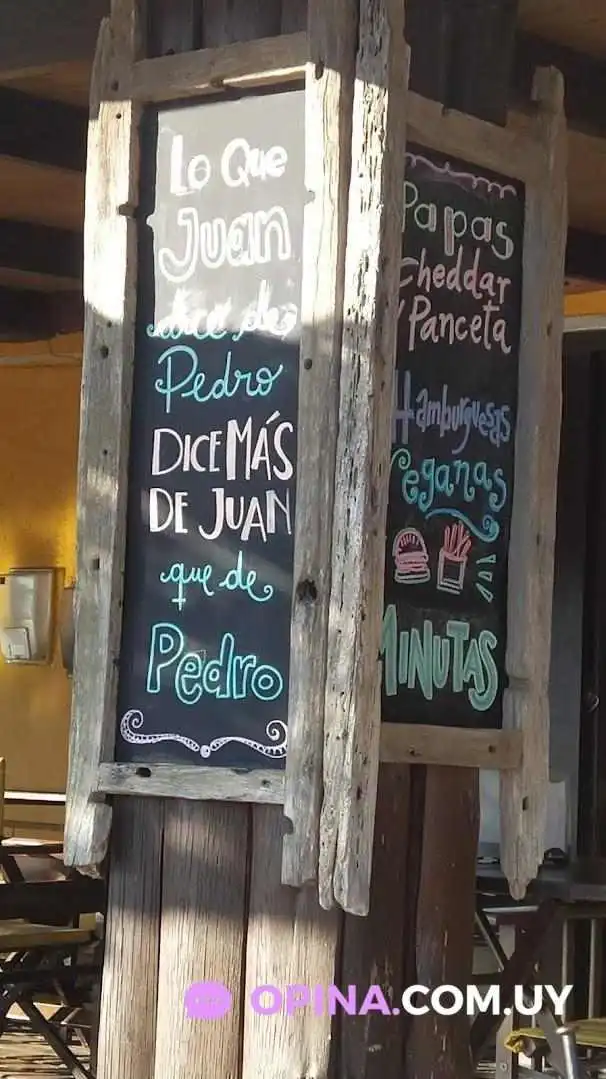 Lo Que
Juan
dice de
Pedro
DICE MÁS
DE JUAN
que de
Pedro
Papas
Cheddar
Y Panceta
Hamburguesas
Veganas
MINUTAS
OPINA.COM.UY